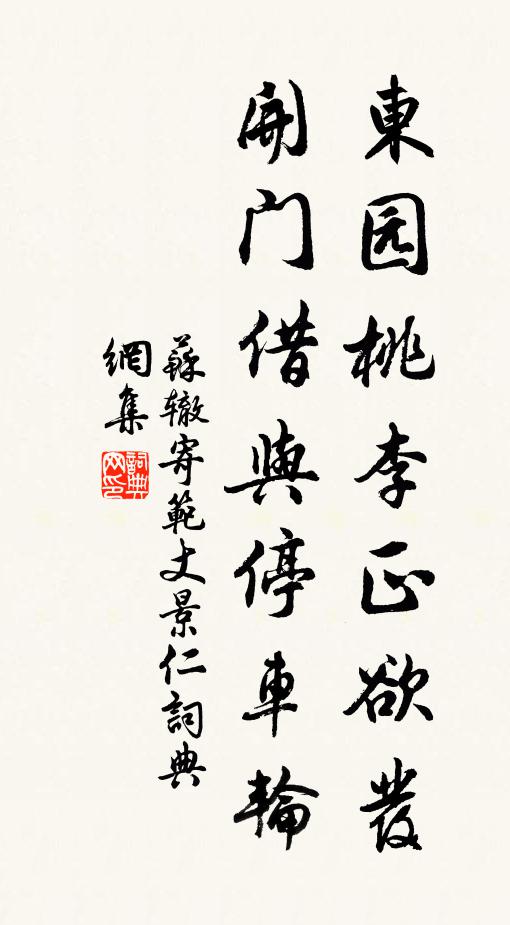 東园桃李正欲發
開门借與停車輪
蘇辙寄範丈景仁詞典
網集
詞典
网印